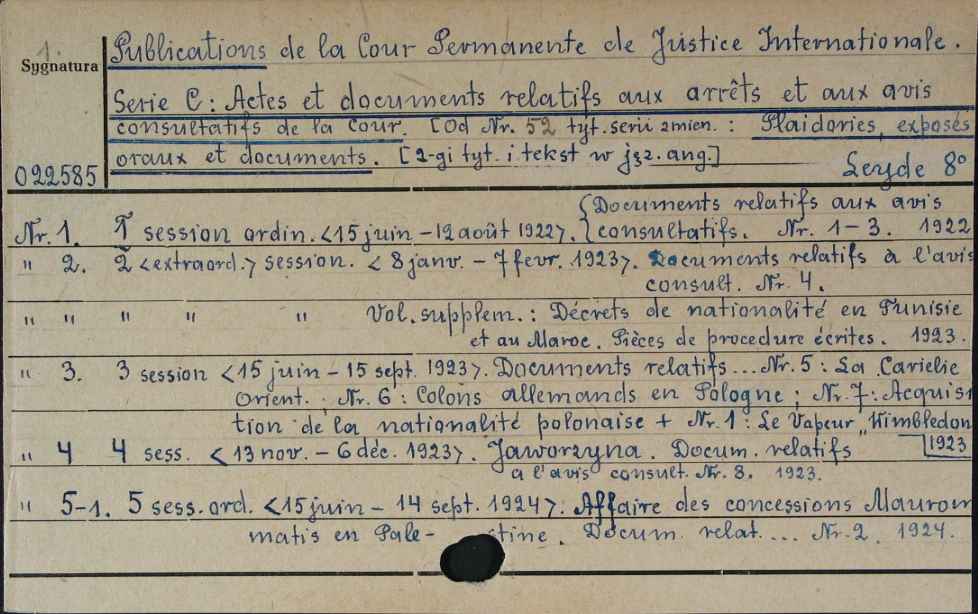 1.
Sygnatura
022585
Publications de la Cour Permanente de Justice Internationale.
Serie C: Actes et documents relatifs aux arrêts et aux avis
consultatifs de la Cour. [Od Nr. 52 tyt. serii zmien.: Plaidories, exposés
oraux et documents. [2-gi tyt. i tekst w jęz. ang.]
Leyde 8°
Nr. 1. 1 session ordin. <15 juin - 12 août 1922>. {Documents relatifs aux avis
consultatifs. Nr. 1-3. 1922
" 2. 2 <extraord.> session. <8 janv. - 7 fevr. 1923>. Documents relatifs à l'avis
consult. Nr. 4.
" " " " " Vol. supplem.: Décrets de nationalité en Tunisie
et au Maroc. Pièces de procedure écrites. 1923.
" 3. 3 session <15 juin - 15 sept. 1923>. Documents relatifs... Nr. 5: La Carielie
Orient. Nr. 6: Colons allemands en Pologne; Nr. 7: Acquisi
tion de la nationalité polonaise + Nr. 1: Le Vapeur „Wimbledon
1923
" 4 4 sess. <13 nov. - 6 déc. 1923>. Jaworzyna. Docum. relatifs
a l'avis consult. Nr. 8. 1923.
" 5-1. 5 sess. ord. <15 juin - 14 sept. 1924>. Affaire des concessions Mavrom
matis en Pale- stine. Docum. relat.... Nr. 2. 1924.